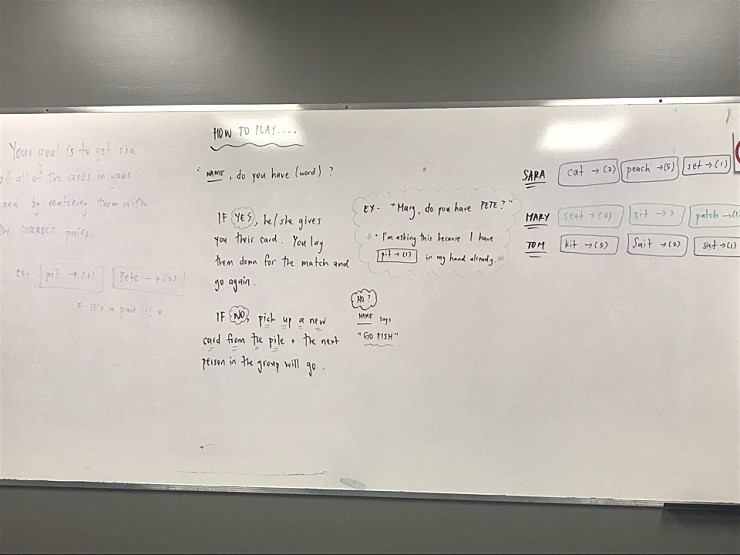 Your goal is to get rid
of all of the cards in your
hand by matching them with
the CORRECT pairs.
ex: pit → (1) Pete → (2)
* It's a pair !!! *
HOW TO PLAY....
"NAME, do you have (word) ?
IF YES, he/she gives
you their card. You lay
them down for the match and
go again.
IF NO, pick up a new
card from the pile + the next
person in the group will go.
EX- "Mary, do you have PETE?"
* I'm asking this because I have
pit → (1) in my hand already.
NO?
NAME says
"GO FISH"
SARA cat → (2) peach → (5) set → (1)
MARY seat → sit → 3 patch →
TOM kit → (5) Sait → (2) sat → (1)